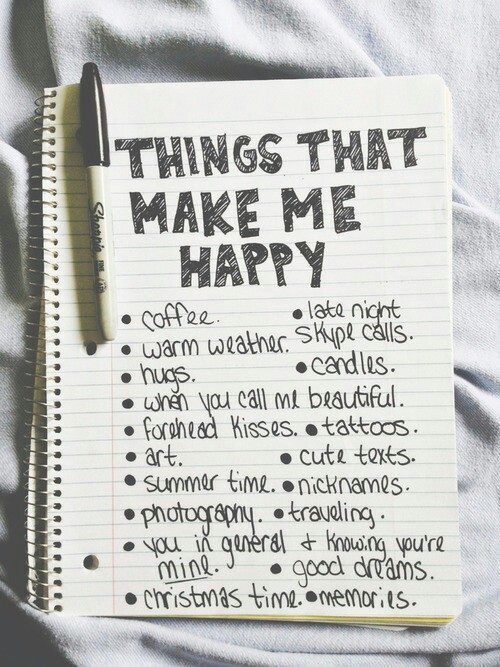 THINGS THAT
MAKE ME
HAPPY
Sharpie
• coffee. • late night skype calls.
• warm weather.
• hugs. • candles.
• when you call me beautiful.
• forehead kisses. • tattoos.
• art. • cute texts.
• summer time. • nicknames.
• photography. • traveling.
• you in general + knowing you're
mine. • good dreams.
• christmas time. • memories.